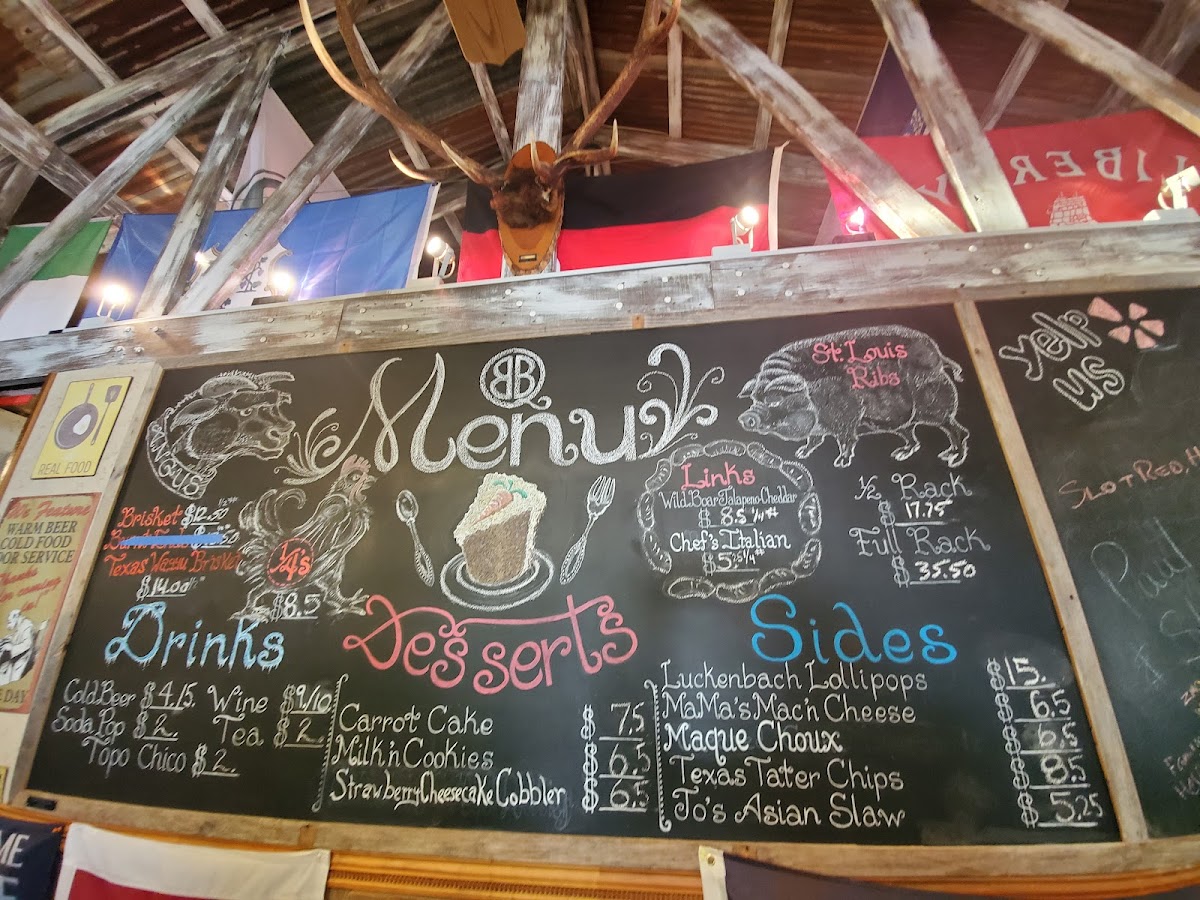 LIBERTY
REAL FOOD
We Feature
WARM BEER
COLD FOOD
POOR SERVICE
DAY
BB
Menu
ANGUS
1/2 lb
Brisket $12.50
Texas Wagyu Brisket
$14.00
1/4's
$8.5
Links
Wild Boar Jalapeno Cheddar
$8.5 1/4#
Chef's Italian
$5.25 1/4#
St. Louis
Ribs
1/2 Rack
$17.75
Full Rack
$35.50
Drinks
Cold Beer $4/5. Wine $9/10
Soda Pop $2. Tea $2.
Topo Chico $2.
Desserts
Carrot Cake $7.5
Milk'n Cookies $6.5
Strawberry Cheesecake Cobbler $6.5
Sides
Luckenbach Lollipops $15.
MaMa's Mac'n Cheese $6.5
Maque Choux $6.5
Texas Tater Chips $8.5
Jo's Asian Slaw $5.25
yelp
us
Paul
ME